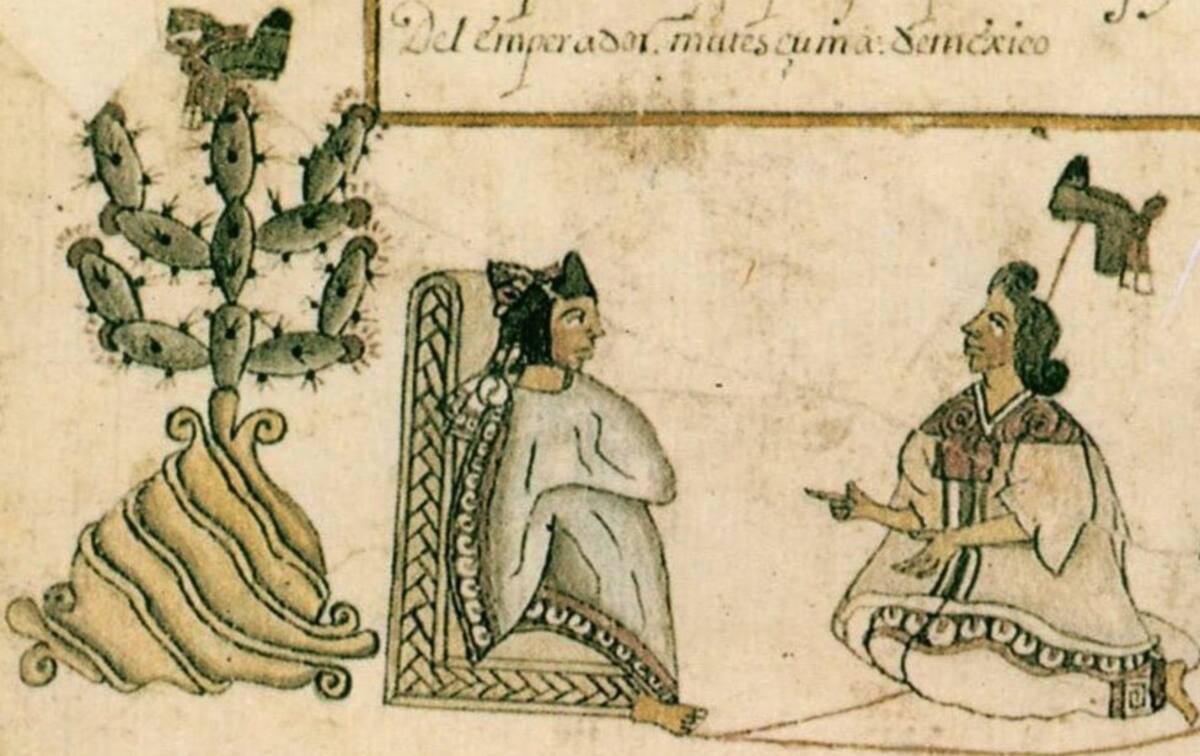 Del emperador. mutesçuma: demexico